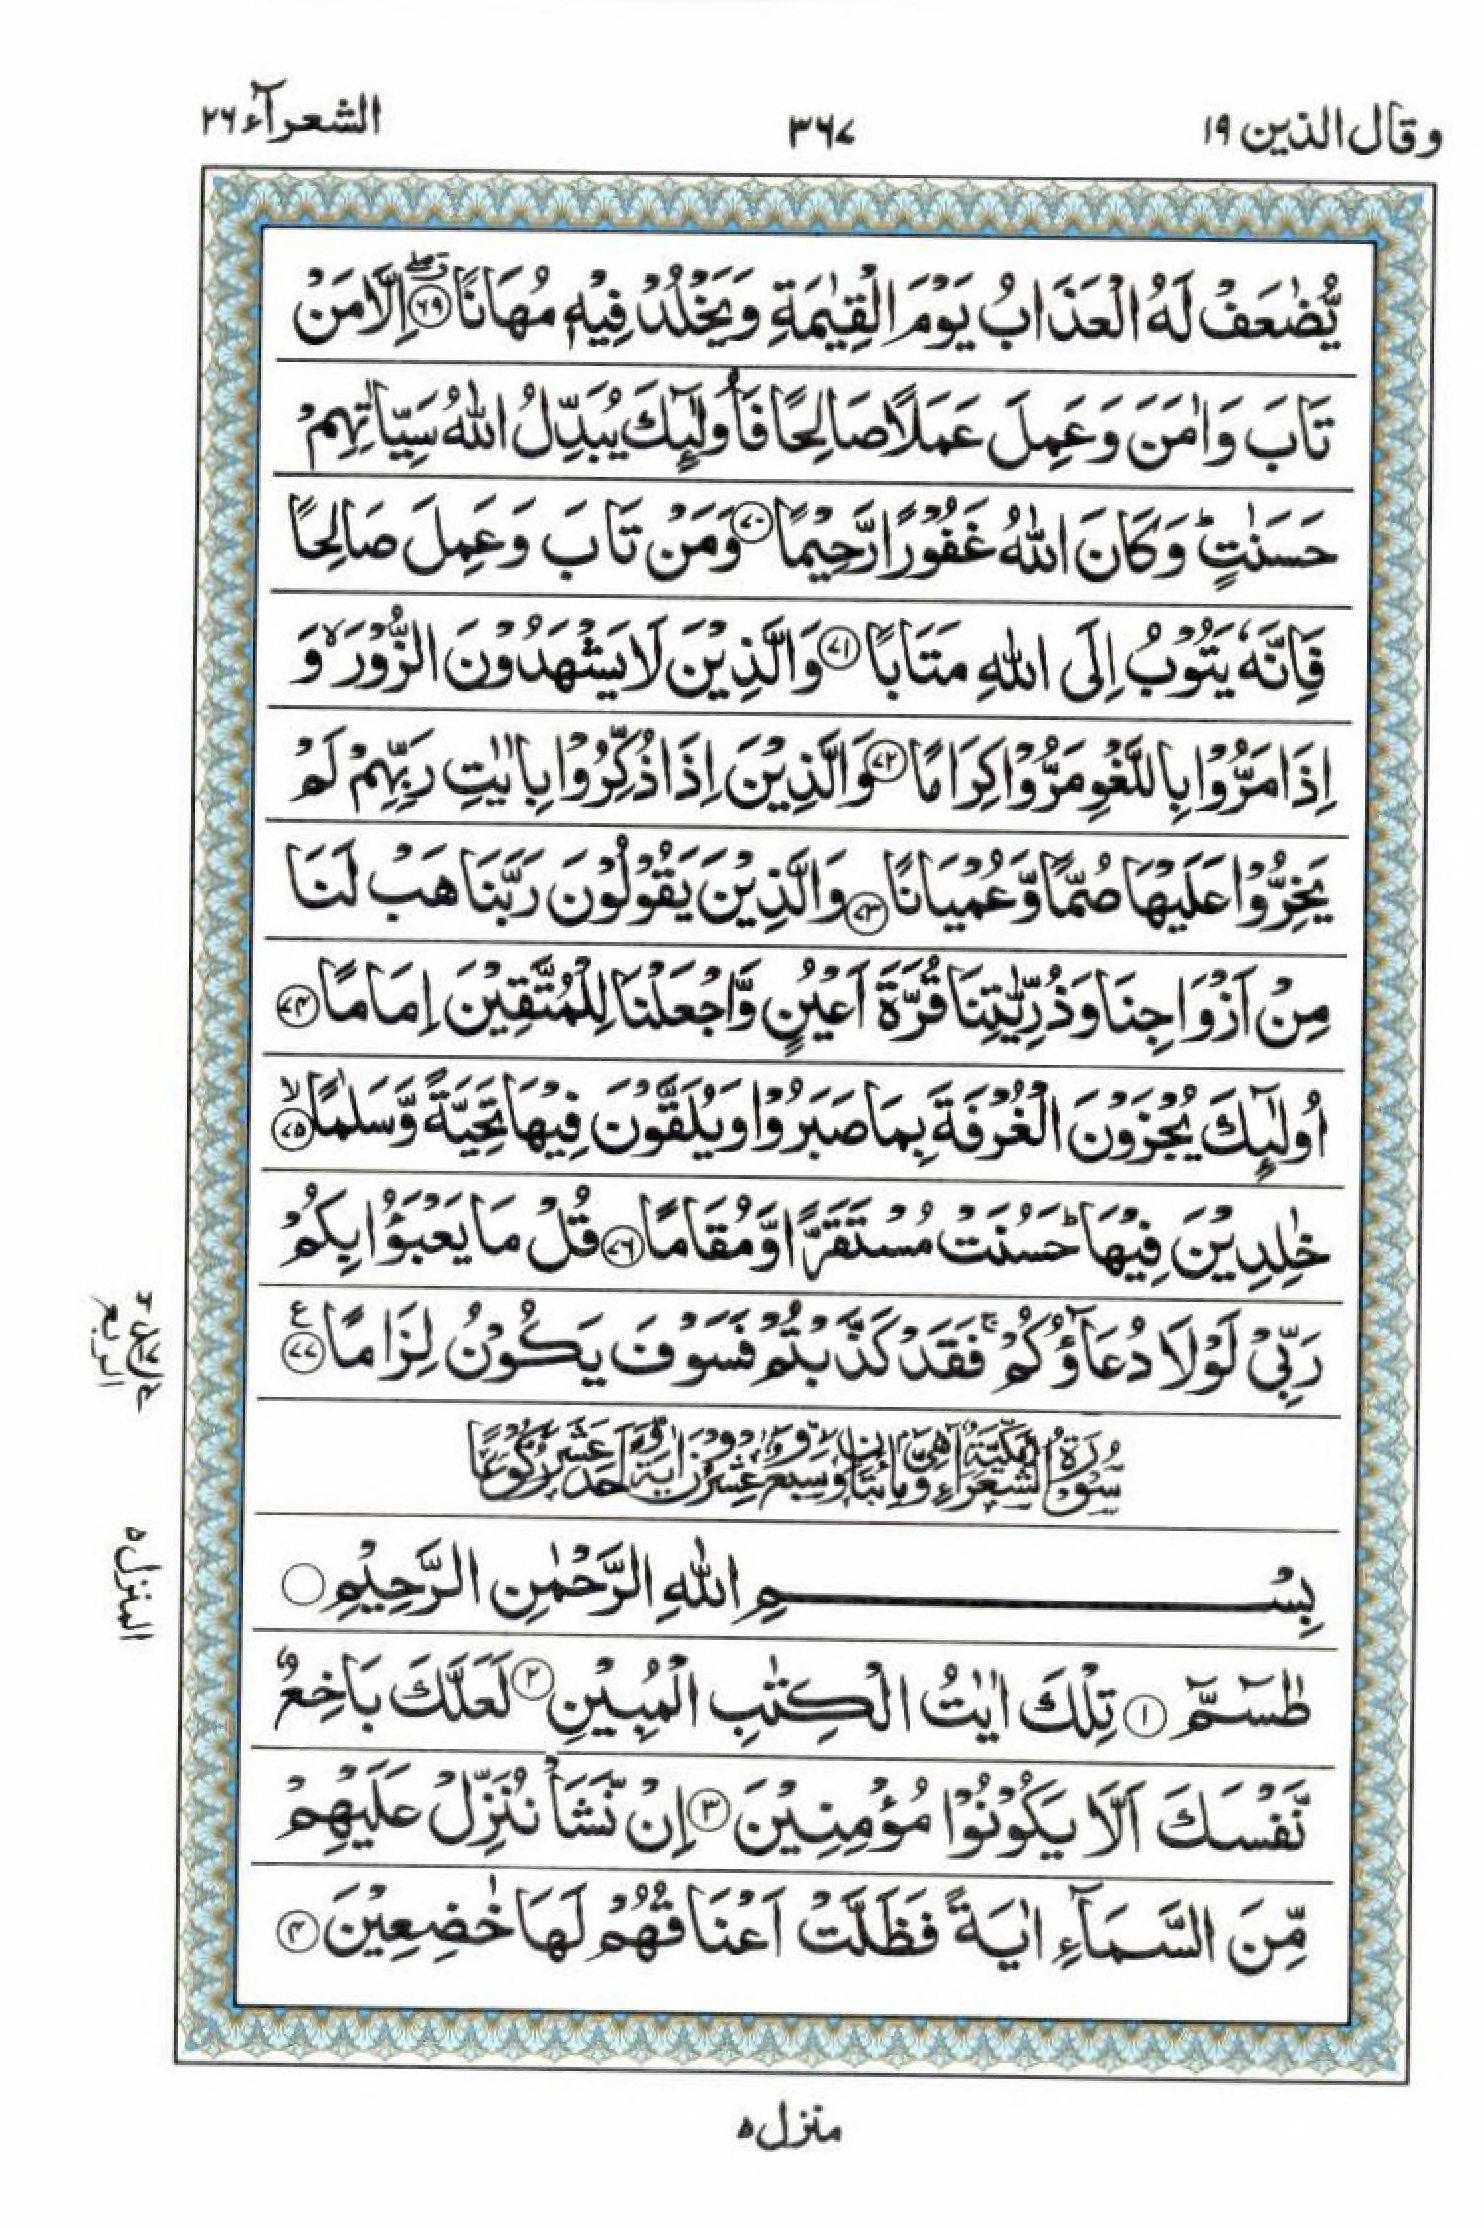 وقال الذین ۱۹
۳۶۷
الشعرآء ۲۶
یُّضٰعَفْ لَهُ الْعَذَابُ یَوْمَ الْقِیٰمَةِ وَیَخْلُدْ فِیْهٖ مُهَانًا ۶۹ اِلَّا مَنْ
تَابَ وَاٰمَنَ وَعَمِلَ عَمَلًا صَالِحًا فَاُولٰٓئِكَ یُبَدِّلُ اللّٰهُ سَیِّاٰتِهِمْ
حَسَنٰتٍ ؕ وَكَانَ اللّٰهُ غَفُوْرًا رَّحِیْمًا ۷۰ وَمَنْ تَابَ وَعَمِلَ صَالِحًا
فَاِنَّهٗ یَتُوْبُ اِلَی اللّٰهِ مَتَابًا ۷۱ وَالَّذِیْنَ لَا یَشْهَدُوْنَ الزُّوْرَ ۙ وَ
اِذَا مَرُّوْا بِاللَّغْوِ مَرُّوْا كِرَامًا ۷۲ وَالَّذِیْنَ اِذَا ذُكِّرُوْا بِاٰیٰتِ رَبِّهِمْ لَمْ
یَخِرُّوْا عَلَیْهَا صُمًّا وَّعُمْیَانًا ۷۳ وَالَّذِیْنَ یَقُوْلُوْنَ رَبَّنَا هَبْ لَنَا
مِنْ اَزْوَاجِنَا وَذُرِّیّٰتِنَا قُرَّةَ اَعْیُنٍ وَّاجْعَلْنَا لِلْمُتَّقِیْنَ اِمَامًا ۷۴
اُولٰٓئِكَ یُجْزَوْنَ الْغُرْفَةَ بِمَا صَبَرُوْا وَیُلَقَّوْنَ فِیْهَا تَحِیَّةً وَّسَلٰمًا ۙ ۷۵
خٰلِدِیْنَ فِیْهَا ؕ حَسُنَتْ مُسْتَقَرًّا وَّمُقَامًا ۷۶ قُلْ مَا یَعْبَؤُا بِكُمْ
رَبِّیْ لَوْلَا دُعَآؤُكُمْ ۚ فَقَدْ كَذَّبْتُمْ فَسَوْفَ یَكُوْنُ لِزَامًا ۷۷ ع
سُوْرَةُ الشُّعَرَآءِ مَكِّیَّةٌ وَّهِیَ مِائَتَانِ وَسَبْعٌ وَّعِشْرُوْنَ اٰیَةً وَّاَحَدَ عَشَرَ رُكُوْعًا
بِسْمِ اللّٰهِ الرَّحْمٰنِ الرَّحِیْمِ
طٰسٓمّٓ ۱ تِلْكَ اٰیٰتُ الْكِتٰبِ الْمُبِیْنِ ۲ لَعَلَّكَ بَاخِعٌ
نَّفْسَكَ اَلَّا یَكُوْنُوْا مُؤْمِنِیْنَ ۳ اِنْ نَّشَاْ نُنَزِّلْ عَلَیْهِمْ
مِّنَ السَّمَآءِ اٰیَةً فَظَلَّتْ اَعْنَاقُهُمْ لَهَا خٰضِعِیْنَ ۴
الربع
المنزل ۵
منزل ۵